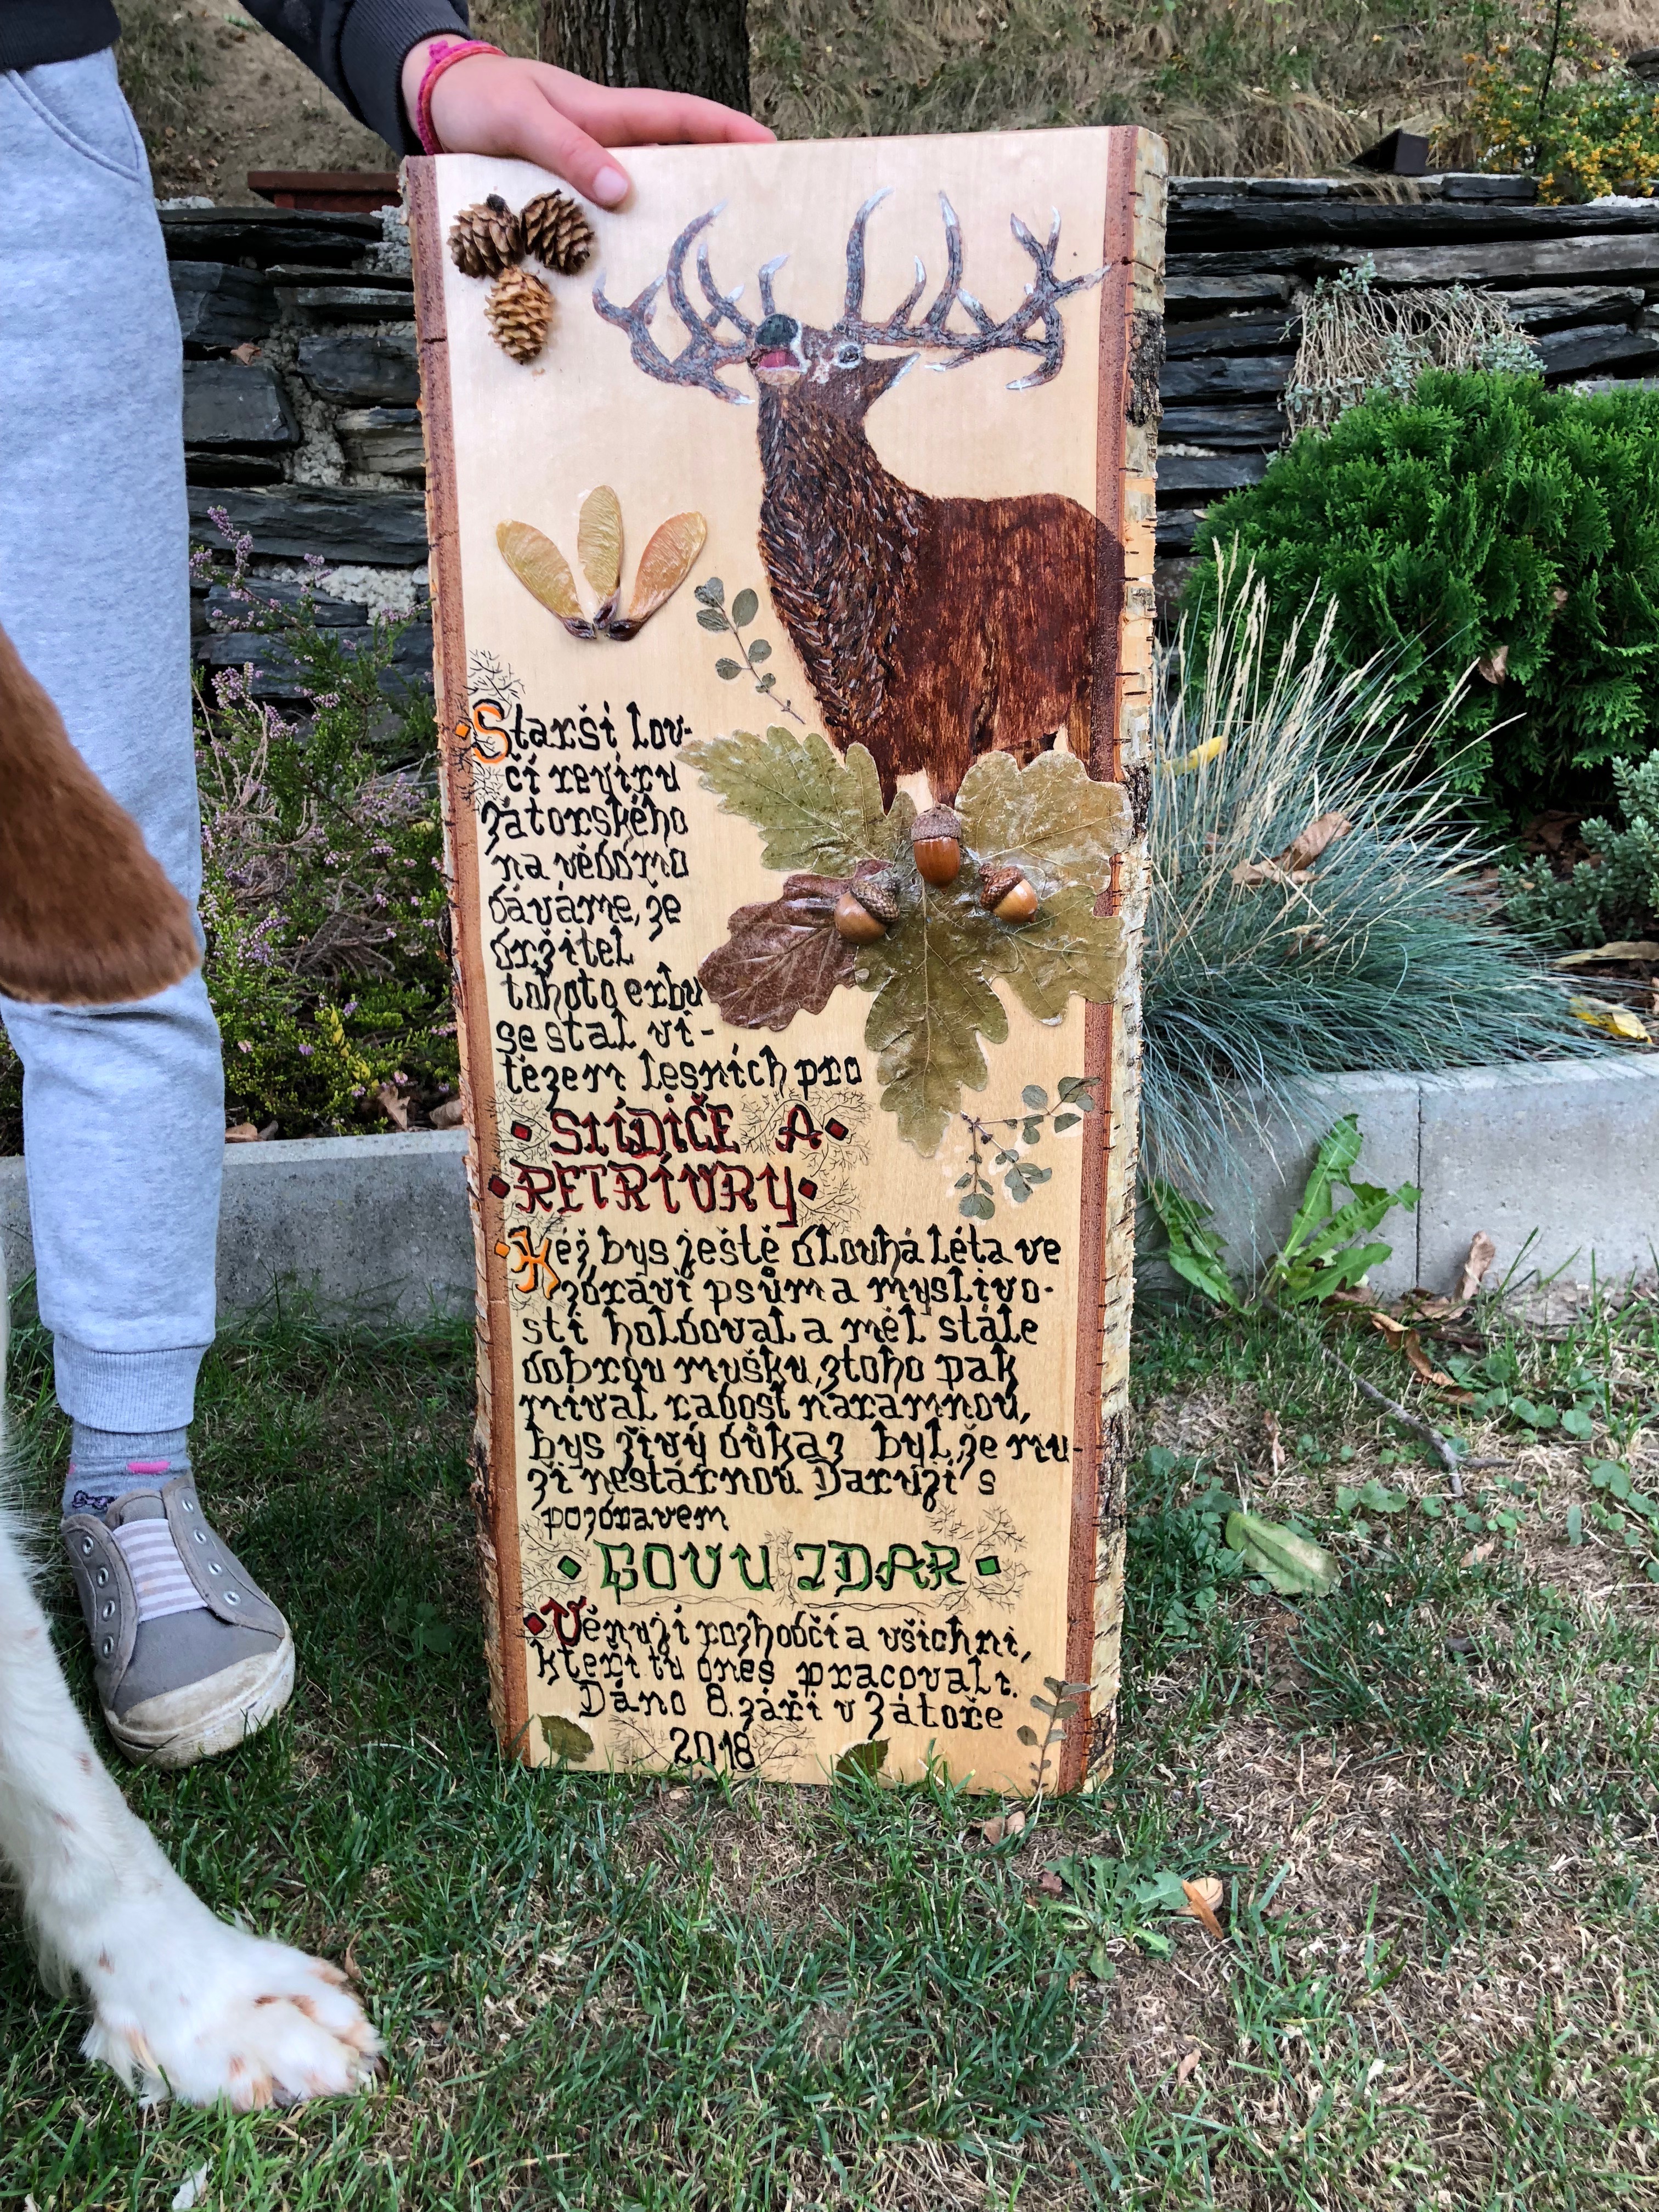 Starší lov-
čí revíru
zátorského
na vědomo
dáváme, že
držitel
tohoto erbu
se stal ví-
tězem lesních pro
SLÍDIČE A
RETRÍVRY
Kéž bys ještě dlouhá léta ve
zdraví psům a myslivo-
sti holdoval a měl stále
dobrou mušku, z toho pak
míval radost náramnou,
bys živý důkaz byl, že mu-
ži nestárnou. Darují s
pozdravem
LOVU ZDAR
Věnují rozhodčí a všichni,
kteří tu dnes pracovali.
Dáno 8. září v Zátoře
2018